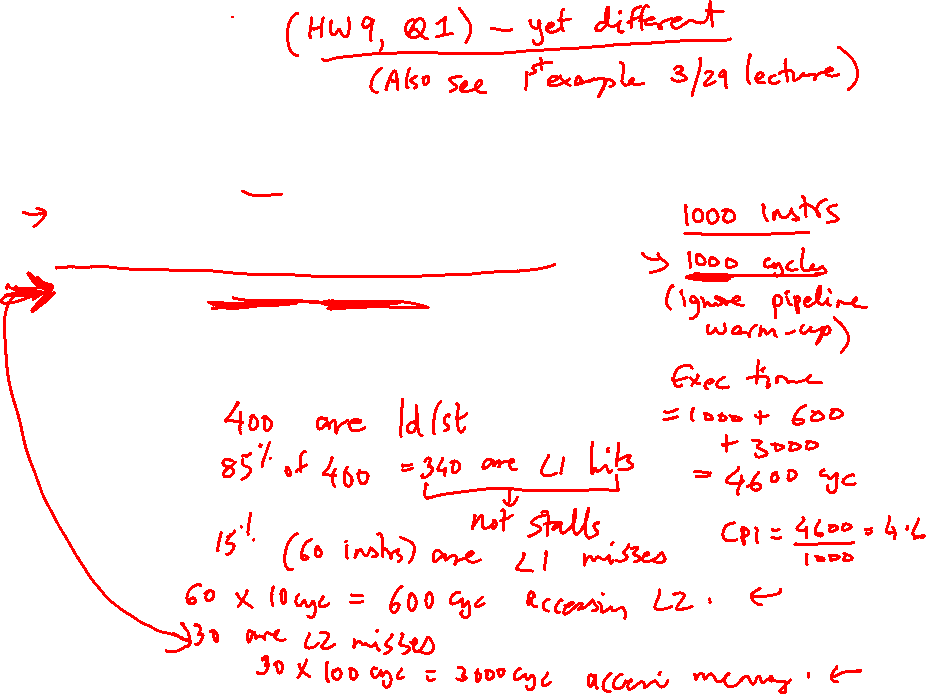 (HW9, Q1) - yet different
(Also see 1st example 3/29 lecture)
1000 instrs
→ 1000 cycles
(ignore pipeline
warm-up)
Exec time
= 1000 + 600
+ 3000
= 4600 cyc
CPI = 4600/1000 = 4.6
400 are ld/st
85% of 400 = 340 are L1 hits
not stalls
15% (60 instrs) are L1 misses
60 x 10 cyc = 600 cyc accessing L2. ←
30 are L2 misses
30 x 100 cyc = 3000 cyc access memory. ←